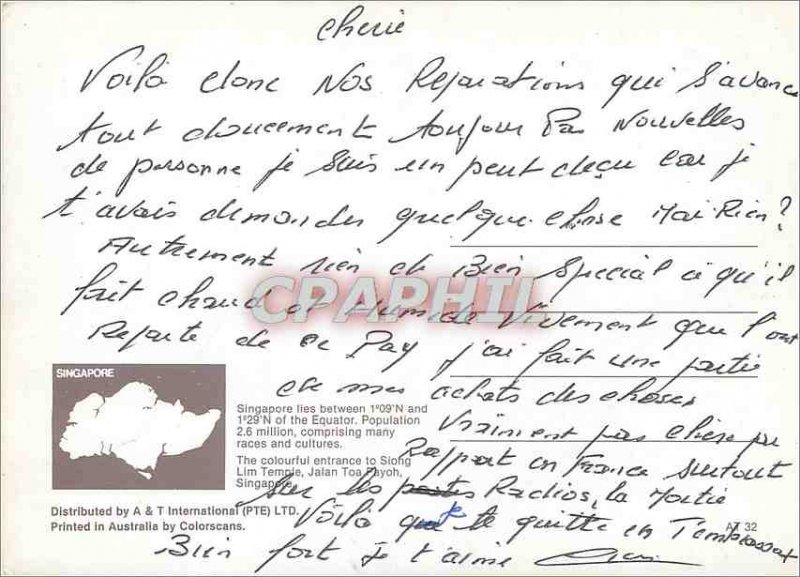 Cherie
Voilà donc Nos Reparations qui s'avance
tout doucement toujour Pas Nouvelles
de personne je suis un peut deçu car je
t'avais demander quelque chose Mai Rien?
Autrement rien de Bien special ci qu'il
fait chaud et humide Vivement que l'ont
Reparte de ce Pay j'ai fait une partie
de mes achats des choses
vraiment pas chère par
Rapport en France surtout
sur les Radios, la Moitié
Voilà je te quitte en T'embrassant
Bien fort Je t'aime
CPAPHIL
SINGAPORE
Singapore lies between 1°09'N and
1°29'N of the Equator. Population
2.6 million, comprising many
races and cultures.
The colourful entrance to Siong
Lim Temple, Jalan Toa Payoh,
Singapore.
Distributed by A & T International (PTE) LTD.
Printed in Australia by Colorscans.
AT 32